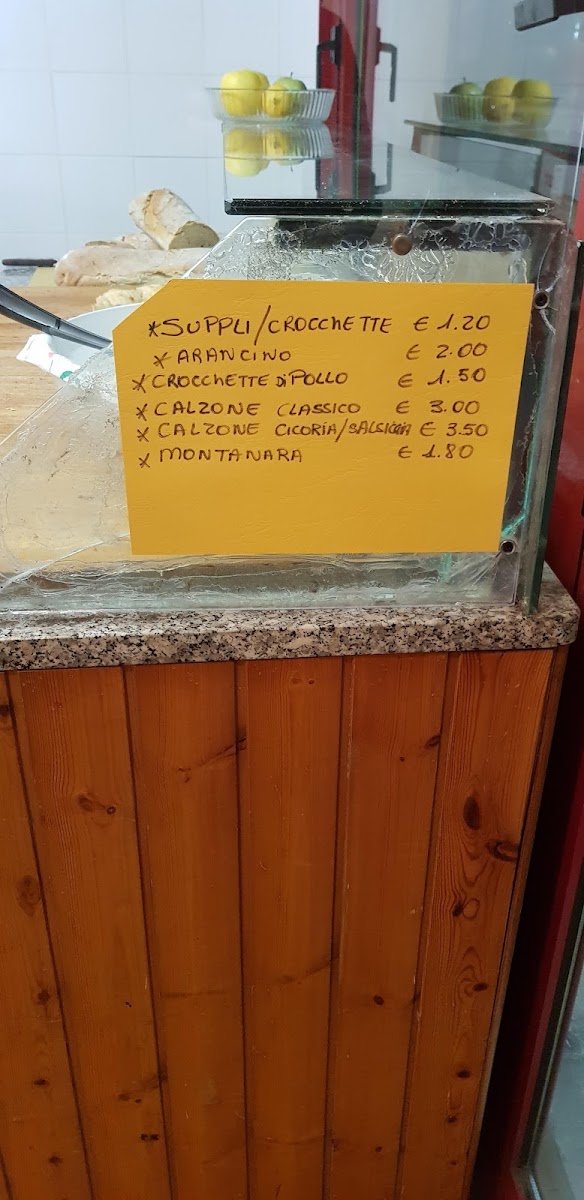 *SUPPLI/CROCCHETTE € 1.20
*ARANCINO € 2.00
*CROCCHETTE DI POLLO € 1.50
*CALZONE CLASSICO € 3.00
*CALZONE CICORIA/SALSICCIA € 3.50
*MONTANARA € 1.80